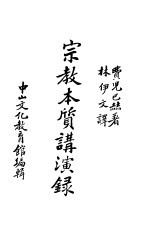 費兒巴赫著
林伊文譯
宗教本質講演錄
中山文化教育館編輯